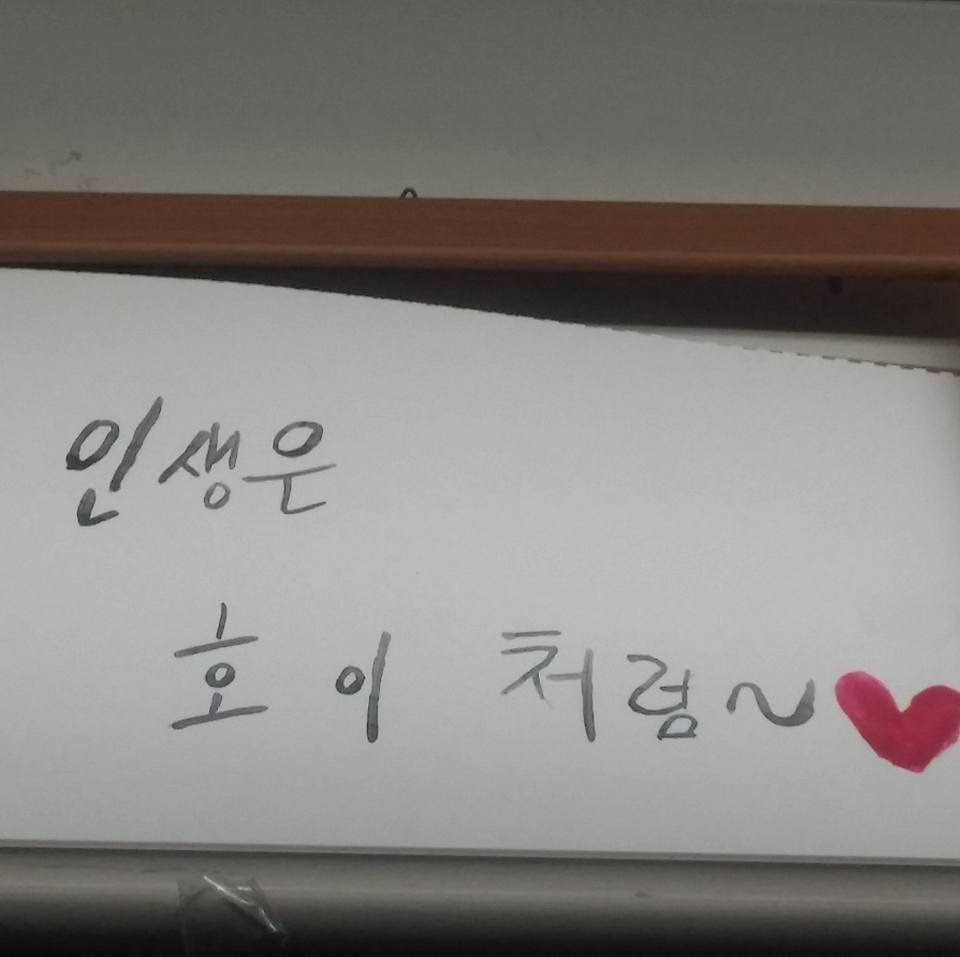 인생은
호이 처럼~♥